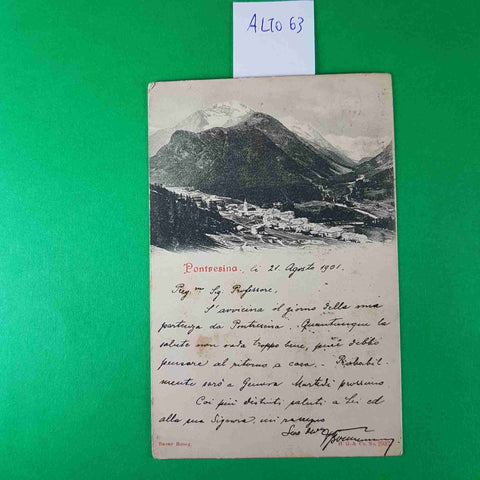 ALTO 63
Pontresina, li 21. Agosto 1901.
Preg.mo Sig. Professore,
S'avvicina il giorno della mia
partenza da Pontresina. Quantunque la
salute non vada troppo bene, pure debbo
pensare al ritorno a casa. Probabil-
mente sarò a Genova Martedì prossimo
Coi più distinti saluti a Lei ed
alla sua Signora, mi raffermo
Suo Dev.mo
Bazar Roseg.
H. G. & Co. No.